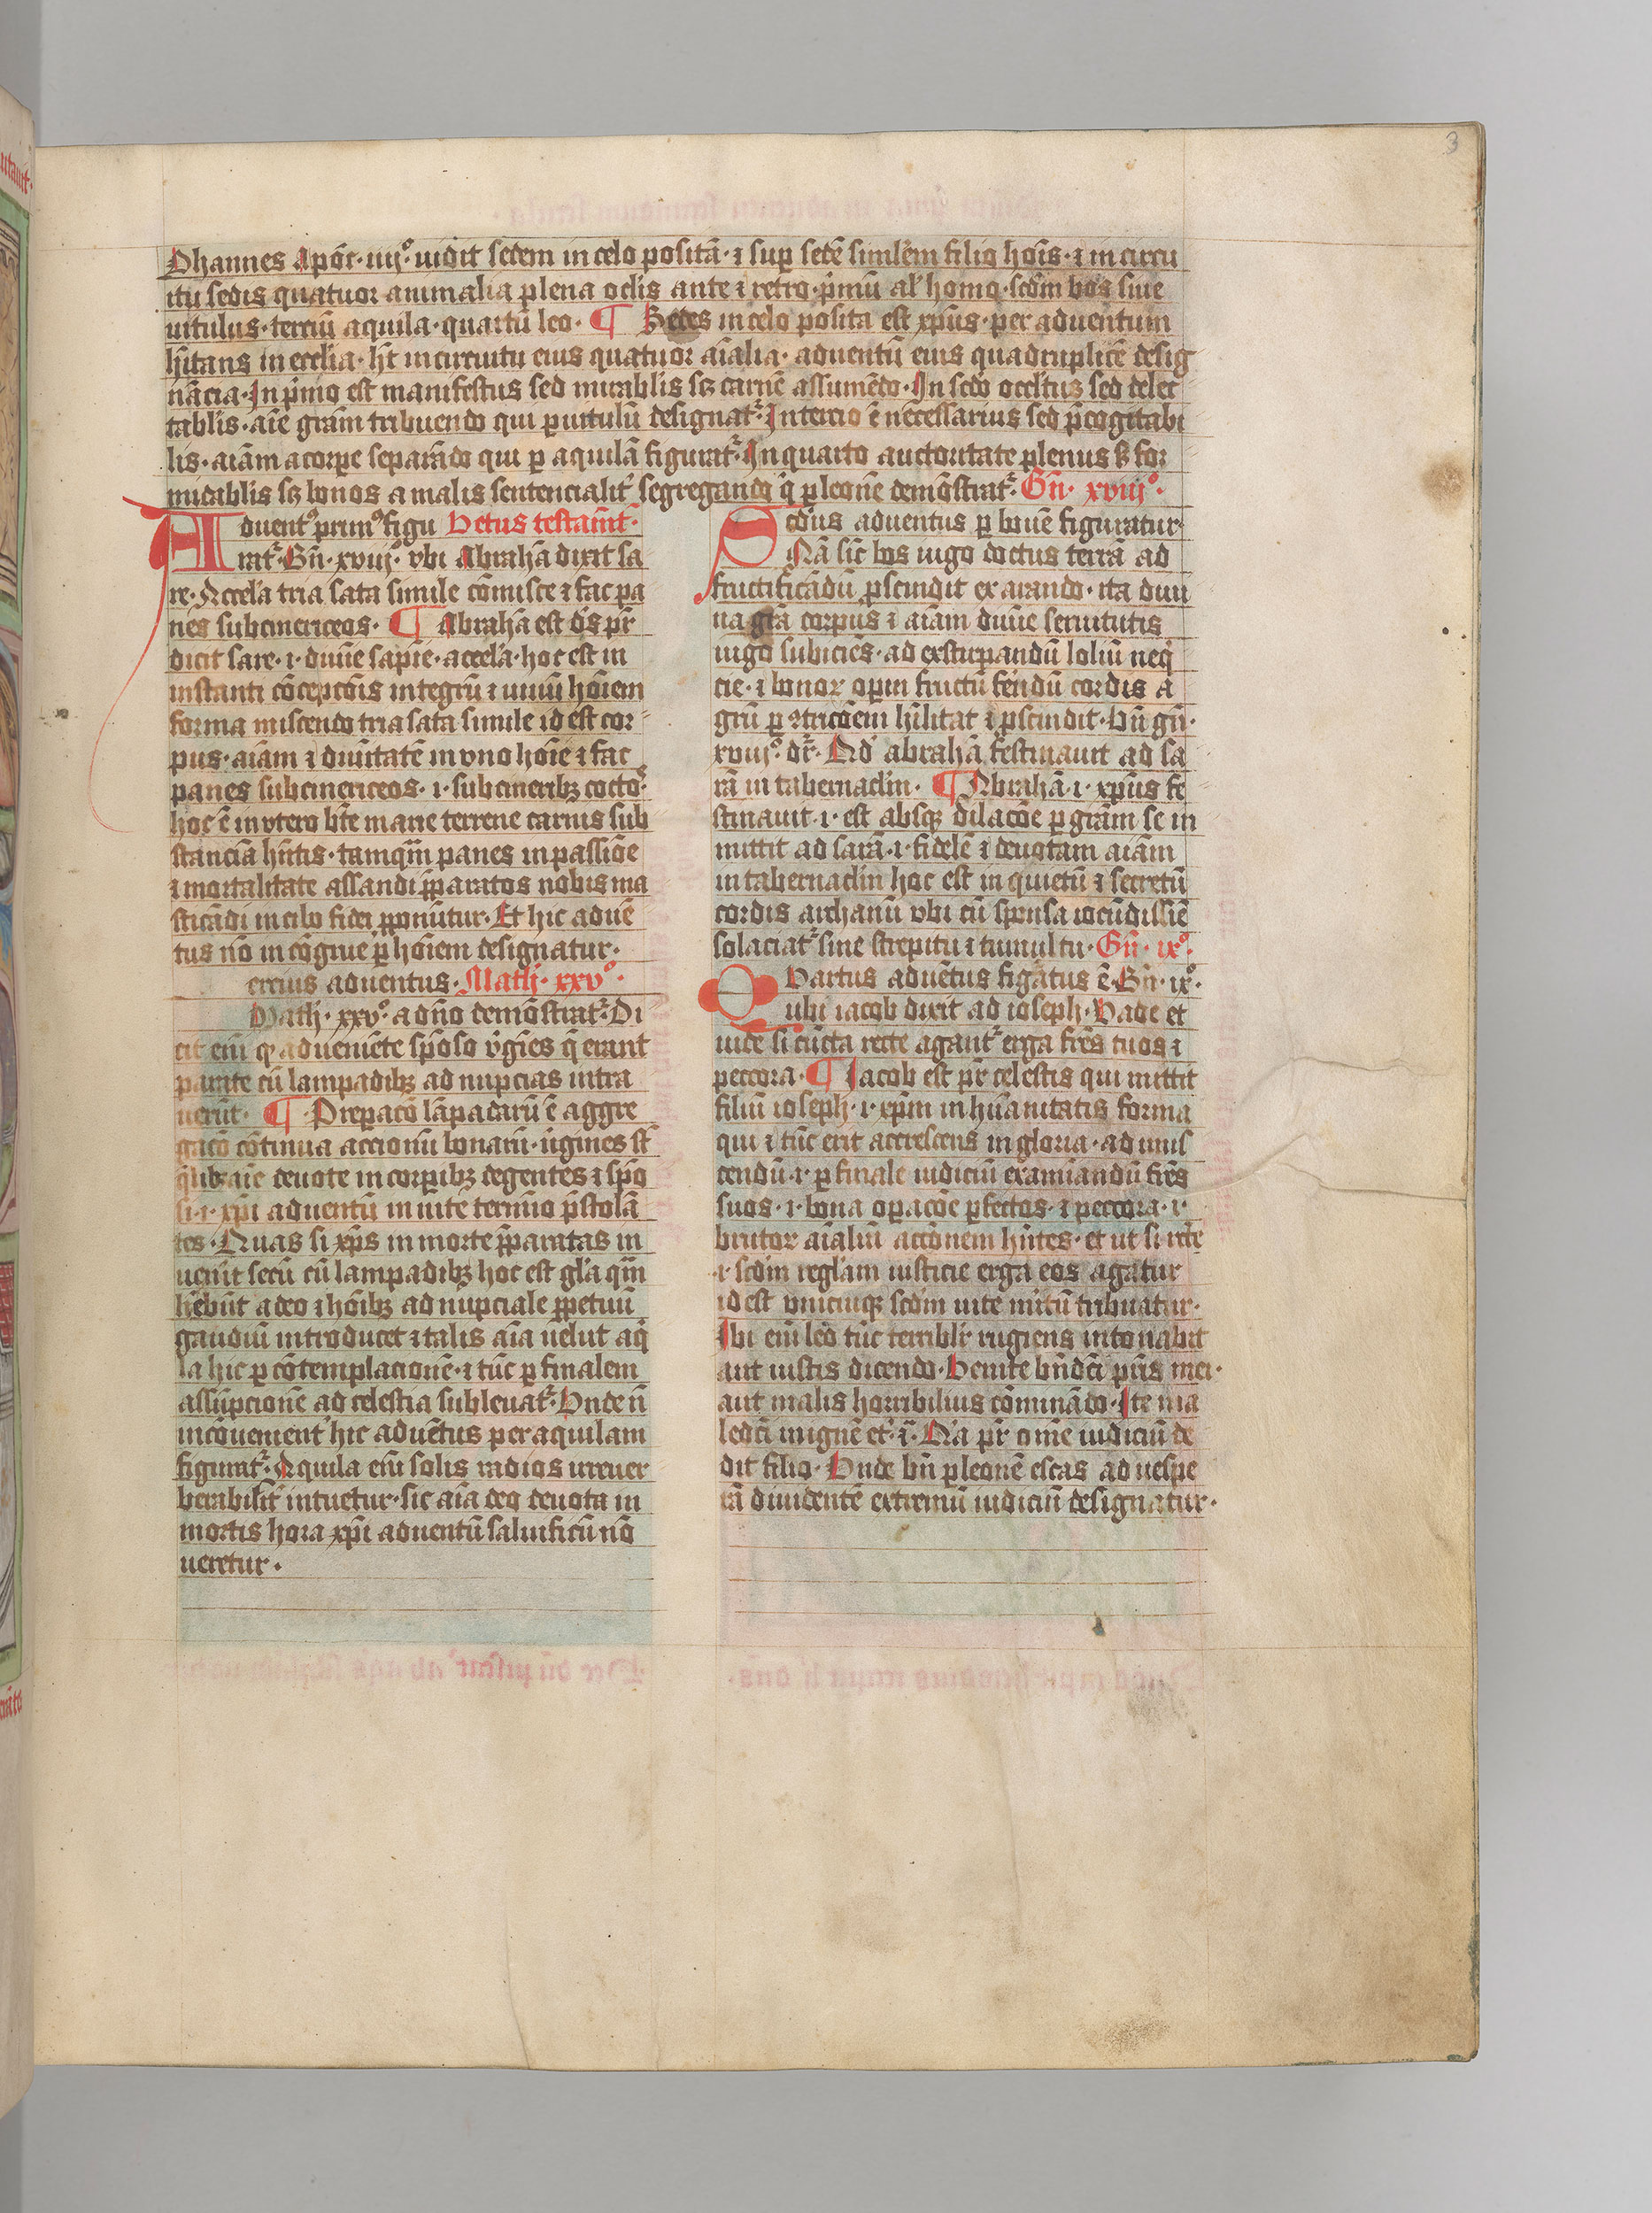 3
Ohannes Apoc̄· iiijͦ· uidit sedem in celo positā· ⁊ sup sedē simlem filio hoīs· ⁊ in circu
itu sedis quatuor animalia plena oclis ante ⁊ retro· pͥmū al' homo· scdm bos siue
uitulus· terciū aquila· quartū leo· ¶ Sedes in celo posita est xpūs· per aduentum
hītans in ecclia· ht̄ in circuitu eius quatuor aīalia· aduentū eius quadruplicē desig
nācia· In pͥmo est manifestus sed mirablis sꝫ carnē assumēdo· In scdo occltus sed delec
tablis· aīe grām tribuendo qui ꝑ uitulū designat᷑· In tercio ē necessarius sed p̄cogitabi
lis· aīam a corpe separādo qui ꝑ aquilā figurat᷑· In quarto auctoritate plenus ꝫ for
midablis sꝫ bonos a malis sentencialit᷑ segregando q̄ ꝑ leonē demōstrat᷑· Gn̄· xviijͦ·
Aduent᷒ prim᷒ figu Vetus testamt̄·
rat᷑· Gn̄· xviijͦ· vbi Abrahā dixit sa
re· Accel'a tria sata simile cōmisce ⁊ fac pa
nes subcinericeos· ¶ Abrahā est ds̄ pr̄
dicit sare· i· diuīe sapīe· accel'a· hoc est in
instanti cōcepcōis integrū ⁊ unū hoīem
forma miscendo tria sata simile id est cor
pus· aīam ⁊ diuītatē in vno hoīe ⁊ fac
panes subcinericeos· i· sub cineribꝫ cocto᷒
hoc ē in vtero bt̄e marie terrene carnis sub
stanciā hn̄tis· tamqm̄ panes in passiōe
⁊ mortalitate assandi p̄paratos nobis ma
sticādi in cibo fidei pponūtur· Et hic aduē
tus nō in cōgrue ꝑ hoīem designatur·
ercius aduentus· Math· xxvͦ·
Math· xxvͦ· a dn̄o demōstrat᷑· Di
cit em̄ qꝫ adueniēte spōso v̄gīes q̄ erant
parate cū lampadibꝫ ad nupcias intra
uerūt· ¶ Preparacō lāpadarū ē aggre
gacō cōtinua accionū bonarū· v̄gines st̄
q̄libꝫ aīe deuote in corpibꝫ degentes ⁊ spō
si· i· xpī aduentū in uite termīo p̄stolā
tes· Quas si xps̄ in morte p̄paratas in
uenīt secū cū lampadibꝫ hoc est gl'a qm̄
hēbūt a deo ⁊ hoībꝫ ad nupciale ppetuū
gaudiū introducet ⁊ talis aīa uelut aqͥ
la hic ꝑ cōtemplacionē· ⁊ tūc ꝑ finalem
assūpcionē ad celestia subleuat᷑· Vnde n̄
incōuenient᷑ hic aduētus per aquilam
figurat᷑· Aquila em̄ solis radios irreuer
berabilit᷑ intuetur· sic aīa deo deuota in
mortis hora xpī aduentū saluificū nō
ueretur·
Scdus aduentus ꝑ bouē figuratur·
Nā sic̄ bos iugo doctus terrā ad
fructificādū ꝓscindit ex arando· ita diui
na grā corpus ⁊ aīam diuīe seruitutis
iugo subiciēs· ad exstirpandū loliū neqͥ
cie· ⁊ bonoꝝ opm̄ fructū fēidū cordis a
grū ꝑ ꝯtricōem hīlitat ⁊ ꝓscindit· Vn̄ gn̄·
xviijͦ· dr̄· Ad' abrahā festinauit ad sa
rā in tabernaclm· ¶ Abrahā· i· xpūs fe
stinauit· i· est absqꝫ dilacōe ꝑ grām se in
mittit ad sarā· i· fidelē ⁊ deuotam aīam
in tabernaclm hoc est in quietū ⁊ secretū
cordis archanū vbi cū spnsa iocūdissīe
solaciat᷑ sine strepitu ⁊ tumultu· Gn̄· ixͦ·
Quartus aduētus figatus ē· Gn̄· ixͦ·
ubi iacob dixit ad ioseph· Vade et
uide si cūcta recte agant᷑ erga frēs tuos ⁊
peccora· ¶ Iacob est pr̄ celestis qui mittit
filiū ioseph· i· xpm̄ in hūanitatis forma
qui ⁊ tūc erit accrescens in gloria· ad inuis
cendū· i· ꝑ finale iudiciū examīandū frēs
suos· i· bona opacōe ꝑfectos· ⁊ peccora· i·
brutoꝝ aīaliū accōnem hn̄tes· et ut si rcte
· i· scdm regl'am iusticie erga eos agatur
id est vnicuiqꝫ scdm uite mitū tribuatur·
Ibi em̄ leo tūc terriblr̄ rugiens intonabit
aut iustis dicendo· Venite bn̄dcī pr̄is mei·
aut malis horribilius cōminādo· Ite ma
ledcī in ignē et᷑· ⁊· Nā pr̄ om̄e iudiciū de
dit filio· Vnde bn̄ ꝑ leonē escas ad vespe
rā diuidentē extremū iudiciū designatur·